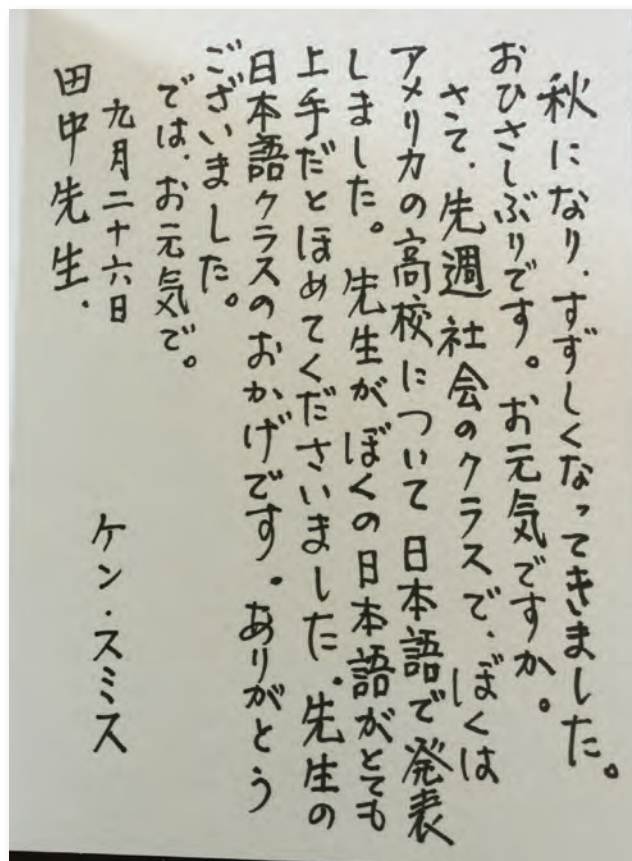 秋になり、すずしくなってきました。
おひさしぶりです。お元気ですか。
さて、先週社会のクラスで、ぼくは
アメリカの高校について日本語で発表
しました。先生がぼくの日本語がとても
上手だとほめてくださいました。先生の
日本語クラスのおかげです。ありがとう
ございました。
では、お元気で。
九月二十六日
ケン・スミス
田中先生.